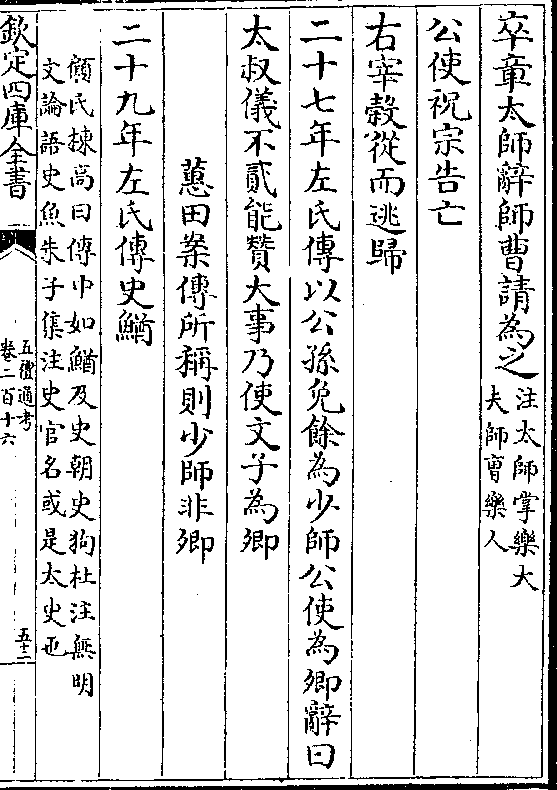 卒章太師辭師曹請為之注太師掌樂大
夫師曹樂人
公使祝宗告亡
右宰榖從而逃歸
二十七年左氏傳以公孫免餘為少師公使為卿辭曰
太叔儀不貳能贊大事乃使文子為卿
蕙田案傳所稱則少師非卿
二十九年左氏傳史鰌
顧氏棟高曰傳中如鰌及史朝史狗杜注無明
文論語史魚朱子集注史官名或是太史也
欽定四庫全書
五禮通考
卷二百十六
五十二